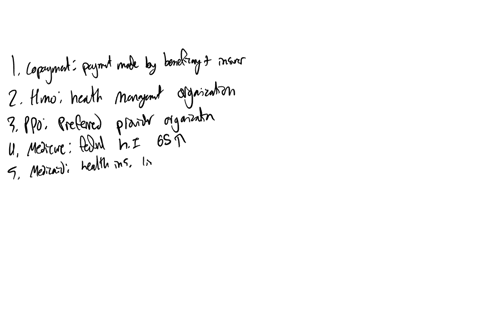 1. Copayment: payment made by beneficiary + insurer
2. Hmo: health management organization
3. PPO: Preferred provider organization
4. Medicare: federal h.I 65↑
5. Medicaid: health ins.